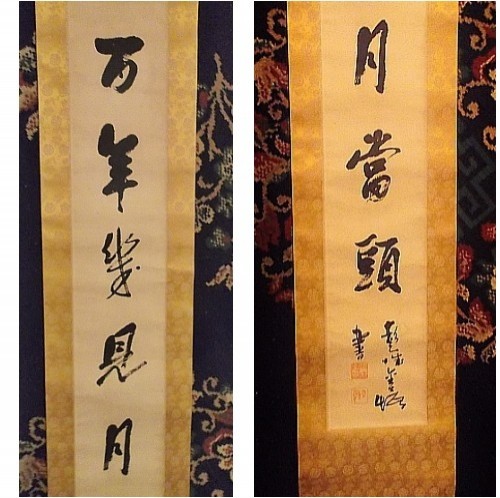 万年幾見月
月當頭
書